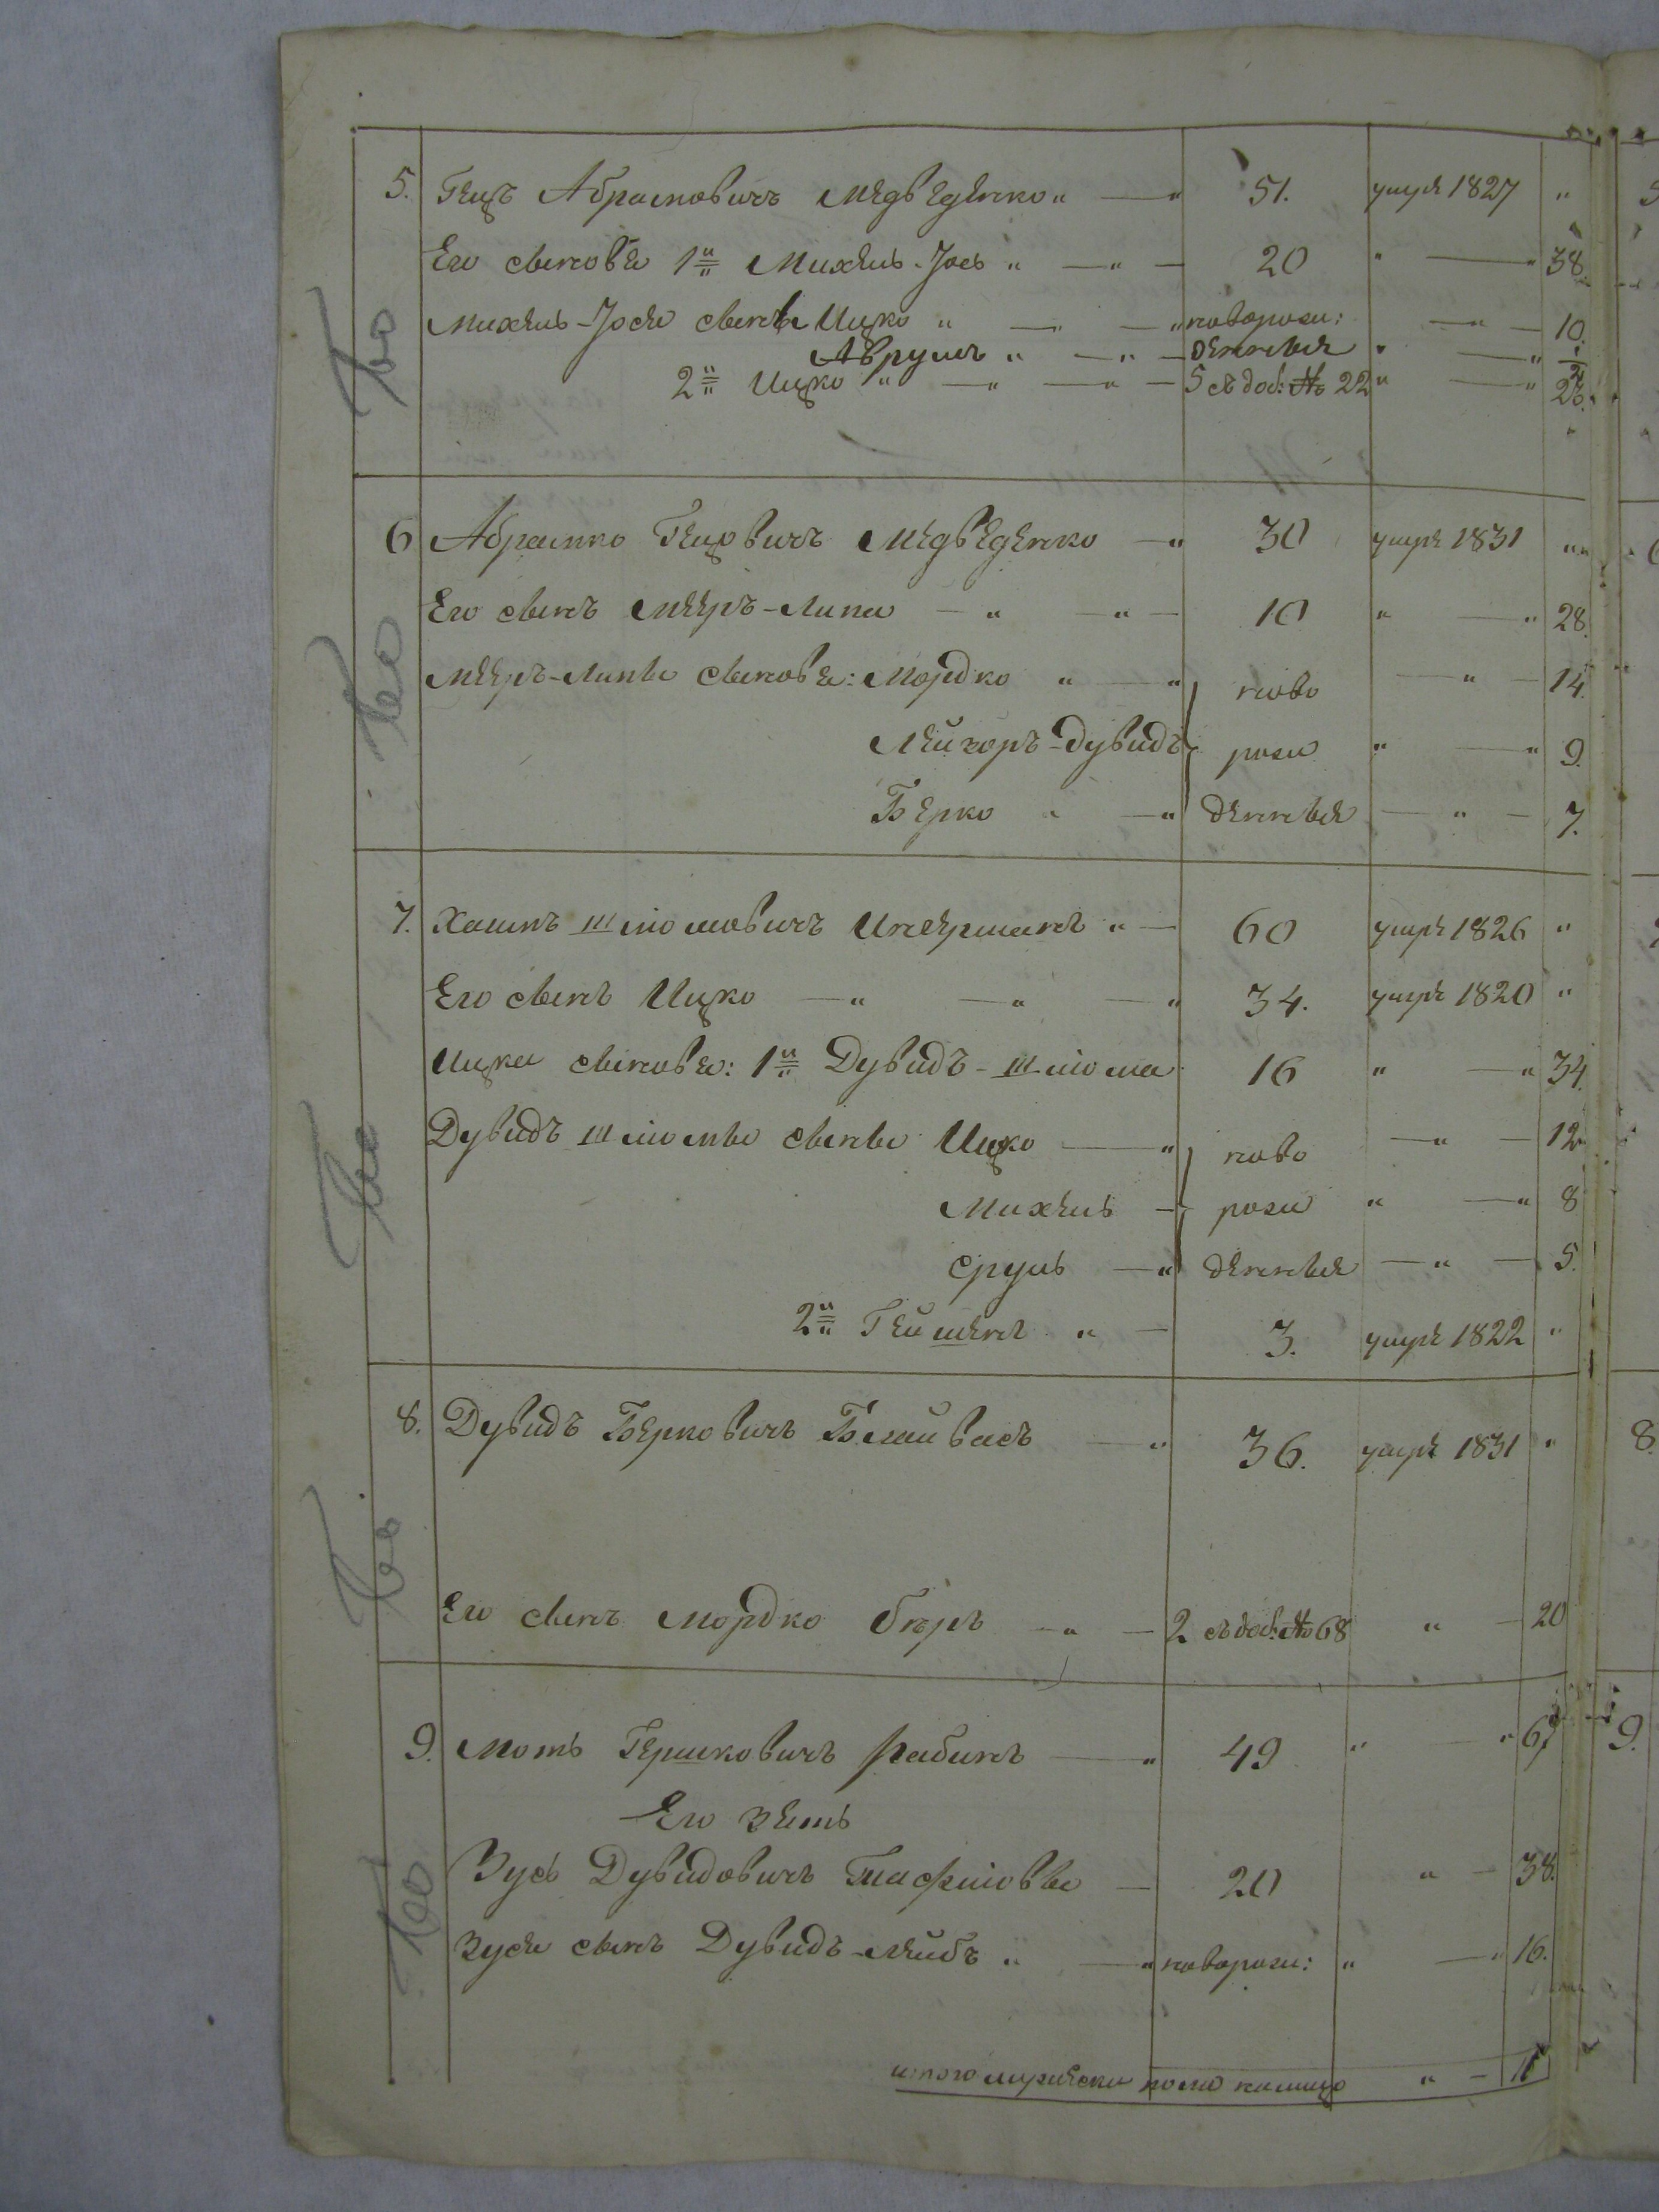 5. Гецъ Абрамовичъ Медведенко " — " 51. умре 1827 "
Его сыновья 1й Михель-Іось " — " — 20 " — " 38.
Михель-Іося сыны Ицко " — " — " новорож: — " — 10.
Аврумъ " — " — денные " — " 1/2
2й Ицко " — " — " — 5 съ доб: № 22 " — "
6 Абрамко Гецовичъ Медведенко — " 30 умре 1831 " "
Его сынъ Мееръ-Липа — " — " — 10 " — " 28.
Мееръ-Липы сыновья: Мордко " — " ново — " — 14.
Лейзоръ-Дувидъ рож " — " 9.
Берко " — " денные — " — 7.
7. Хаимъ Шліомовичъ Инерманъ " — 60 умре 1826 "
Его сынъ Ицко — " — " — " 34. умре 1820 "
Ицка сыновья: 1й Дувидъ-Шліома 16 " — " 34.
Дувидъ Шліомы сыны Ицко — " ново — " — 12
Михель — рож " — " 8
Сруль — " денные — " — 5.
2й Гейшенъ " — 3. умре 1822 "
8. Дувидъ Берковичъ Блайвасъ — " 36. умре 1831 "
Его сынъ Мордко Беръ — " — 2 съ доб: № 68 " — 20
9. Моть Гершковичъ Рабинъ — " 49 " — " 67
Его зять
Зусь Дувидовичъ — 20 " — 38.
Зуся сынъ Дувидъ-Лейбъ " — " новорож: " — " 16.
итого мужеска пола налицо " —